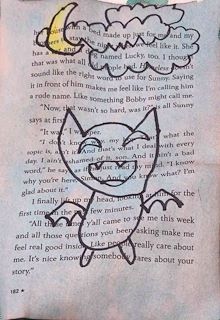 in a bed made up just for me and my
feel like it. She
has a
named Lucky, too. I though
that was what all
sound like the right word to use for Sunny. Saying
it in front of him makes me feel like I'm calling him
a rude name. Like something Bobby might call me.
"Now, that wasn't so hard, was it?" all Sunny
says at first.
"It was," I whisper.
"I don't know why, my
what the
topic is, ain't it? And that's what I deal with every
day. I ain't ashamed of it, son. And it ain't a bad
word," he says
"I know
why you're here
And you know what? I'm
glad about it."
I finally
up my head, looking at him for the
first time in the
few minutes.
"All th
y'all came to see me this week
and all those questions you been asking make me
feel real good inside. Like people really care about
me. It's nice know
somebody cares about your
story."
182 ★